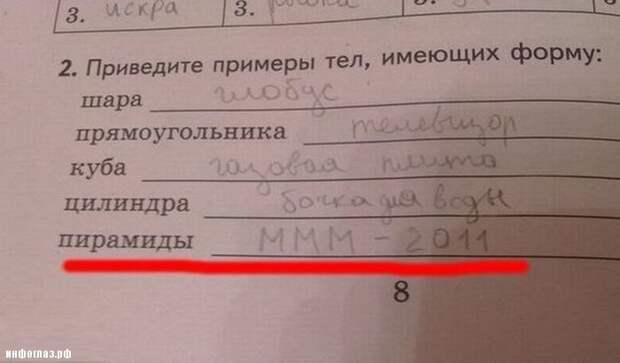 3. искра 3.
2. Приведите примеры тел, имеющих форму:
шара глобус
прямоугольника телевизор
куба газовая плита
цилиндра бочка для воды
пирамиды МММ - 2011
8
инфоглаз.рф